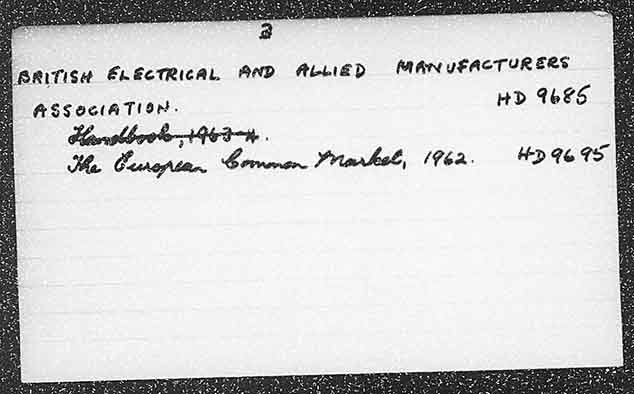 3
BRITISH ELECTRICAL AND ALLIED MANUFACTURERS
ASSOCIATION. HD 9685
Handbook, 1963-4.
The European Common Market, 1962. HD 9695